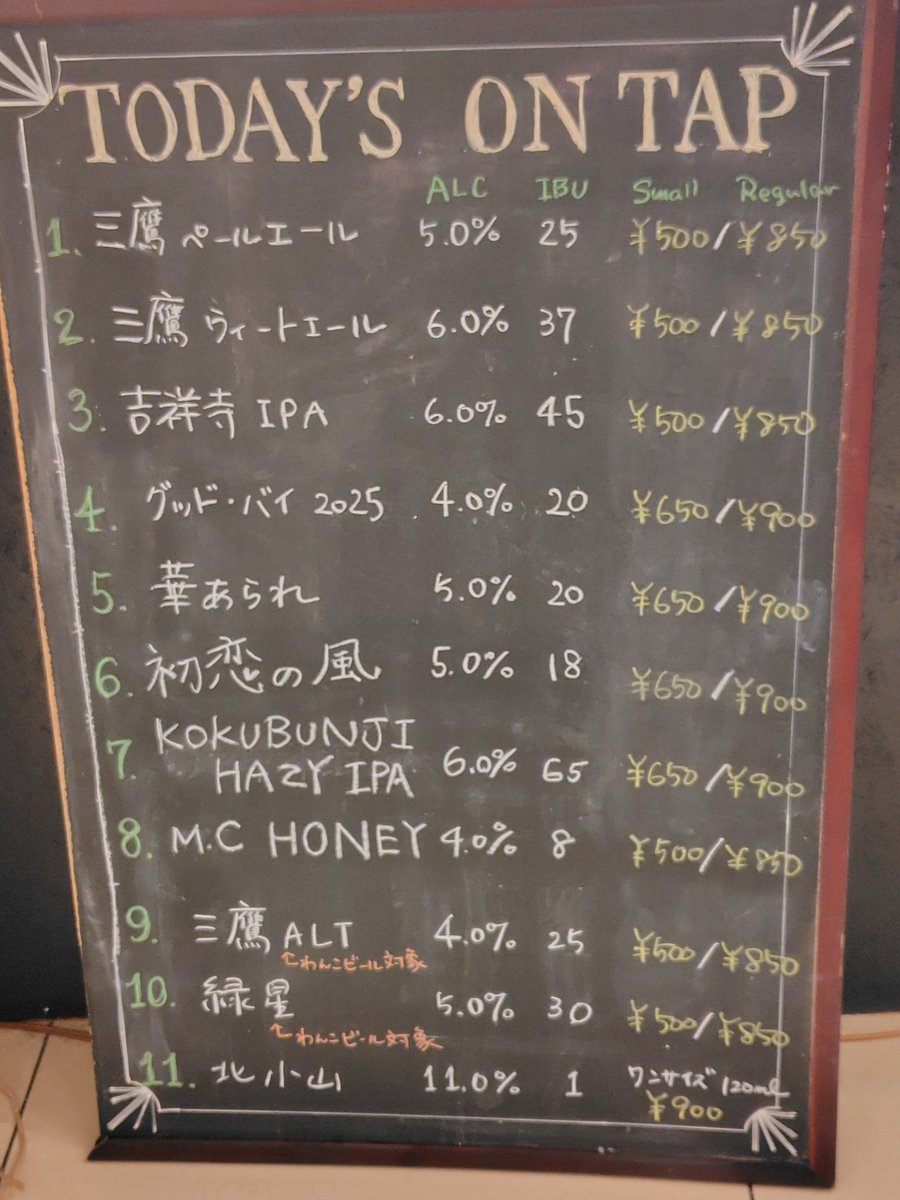 TODAY'S ON TAP
ALC IBU Small Regular
1. 三鷹 ペールエール 5.0% 25 ¥500/¥850
2. 三鷹 ウィートエール 6.0% 37 ¥500/¥850
3. 吉祥寺 IPA 6.0% 45 ¥500/¥850
4. グッド・バイ 2025 4.0% 20 ¥650/¥900
5. 華あられ 5.0% 20 ¥650/¥900
6. 初恋の風 5.0% 18 ¥650/¥900
7. KOKUBUNJI
HAZY IPA 6.0% 65 ¥650/¥900
8. M.C HONEY 4.0% 8 ¥500/¥850
9. 三鷹 ALT 4.0% 25 ¥500/¥850
↑わんこビール対象
10. 緑星 5.0% 30 ¥500/¥850
↑わんこビール対象
11. 北小山 11.0% 1 ワンサイズ 120ml
¥900